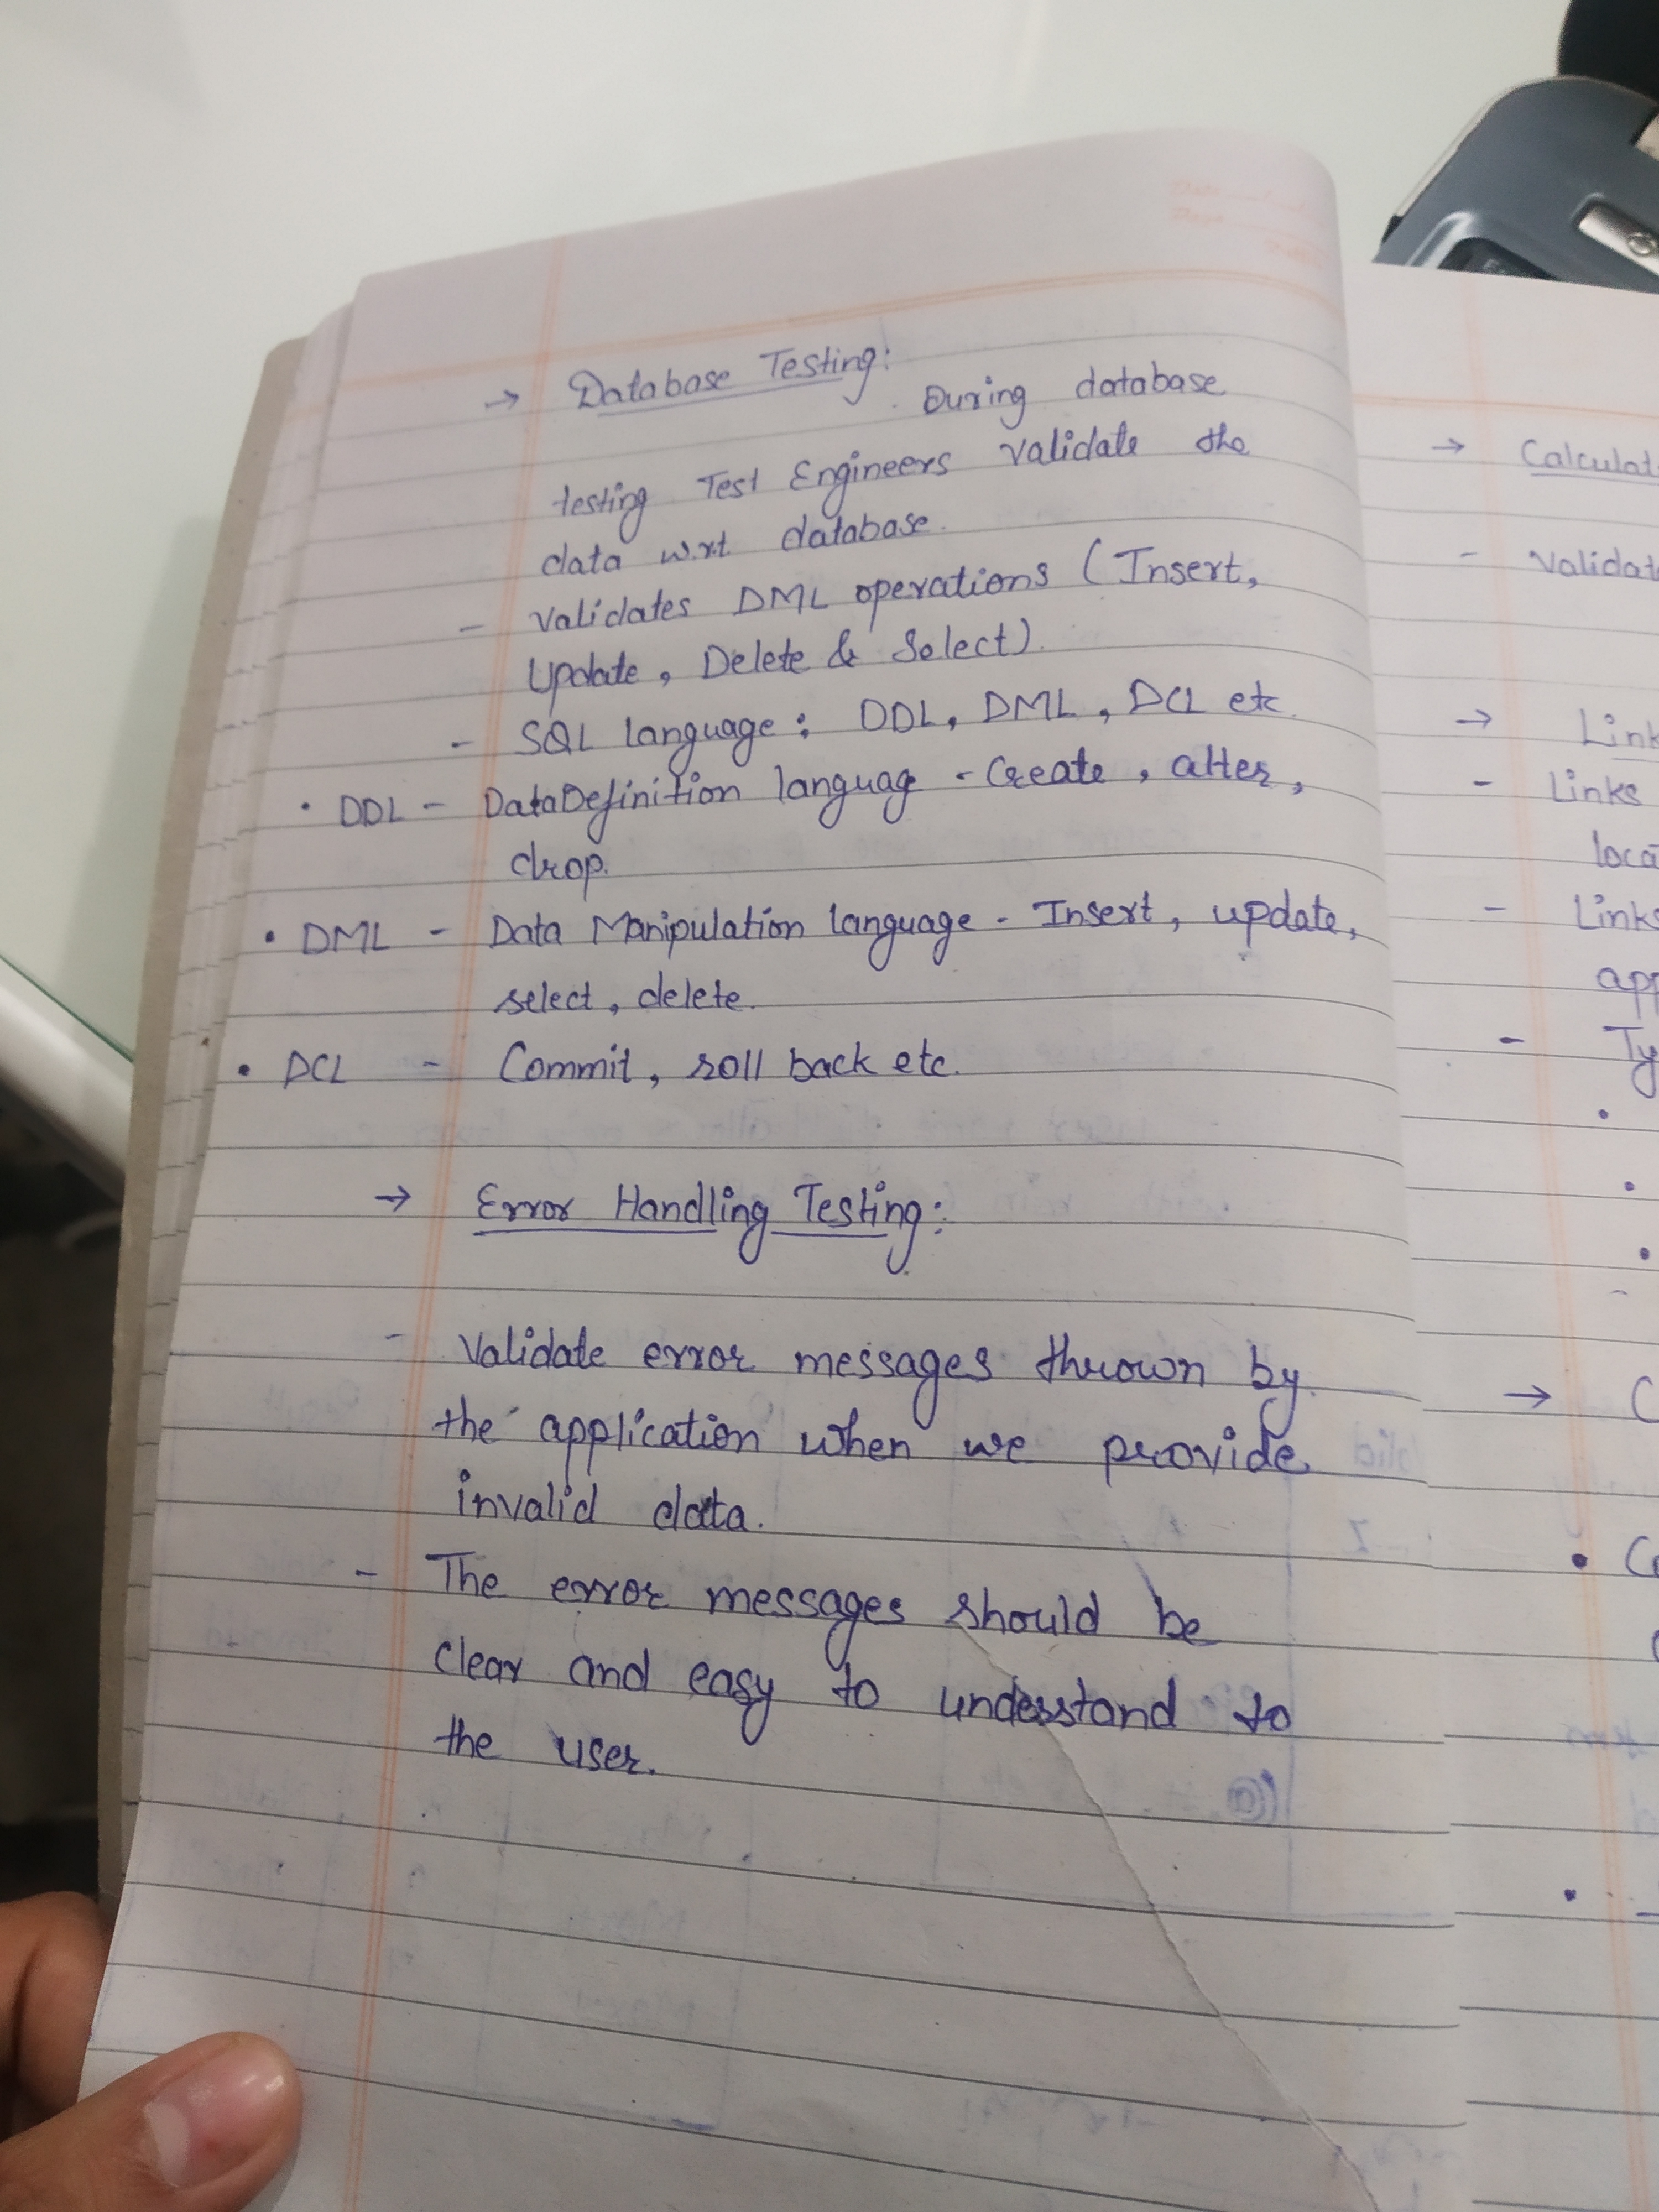 → Database Testing:
During database
testing Test Engineers validate the
data w.r.t database.
- validates DML operations (Insert,
Update, Delete & Select).
- SQL language: DDL, DML, DCL etc.
• DDL - DataDefinition languag - Create, alter,
drop.
• DML - Data Manipulation language - Insert, update,
select, delete.
• DCL - Commit, roll back etc.
→ Error Handling Testing:
- Validate error messages thrown by
the application when we provide
invalid data.
- The error messages should be
clear and easy to understand to
the user.
→ Calculat
- Validat
→ Link
- Links
loca
- Links
app
- Ty
→ C